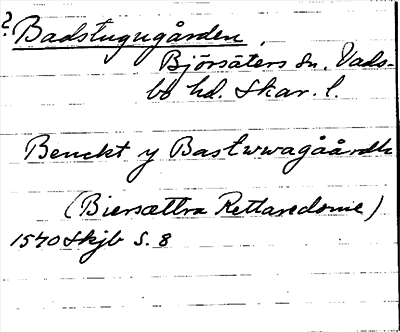 ? Badstugugården,
Björsäters sn. Vads-
bo hd. Skar. l.
Benckt y Bastwwagåårdh
(Biersættra Rettaredöme)
1540 Skjb S. 8